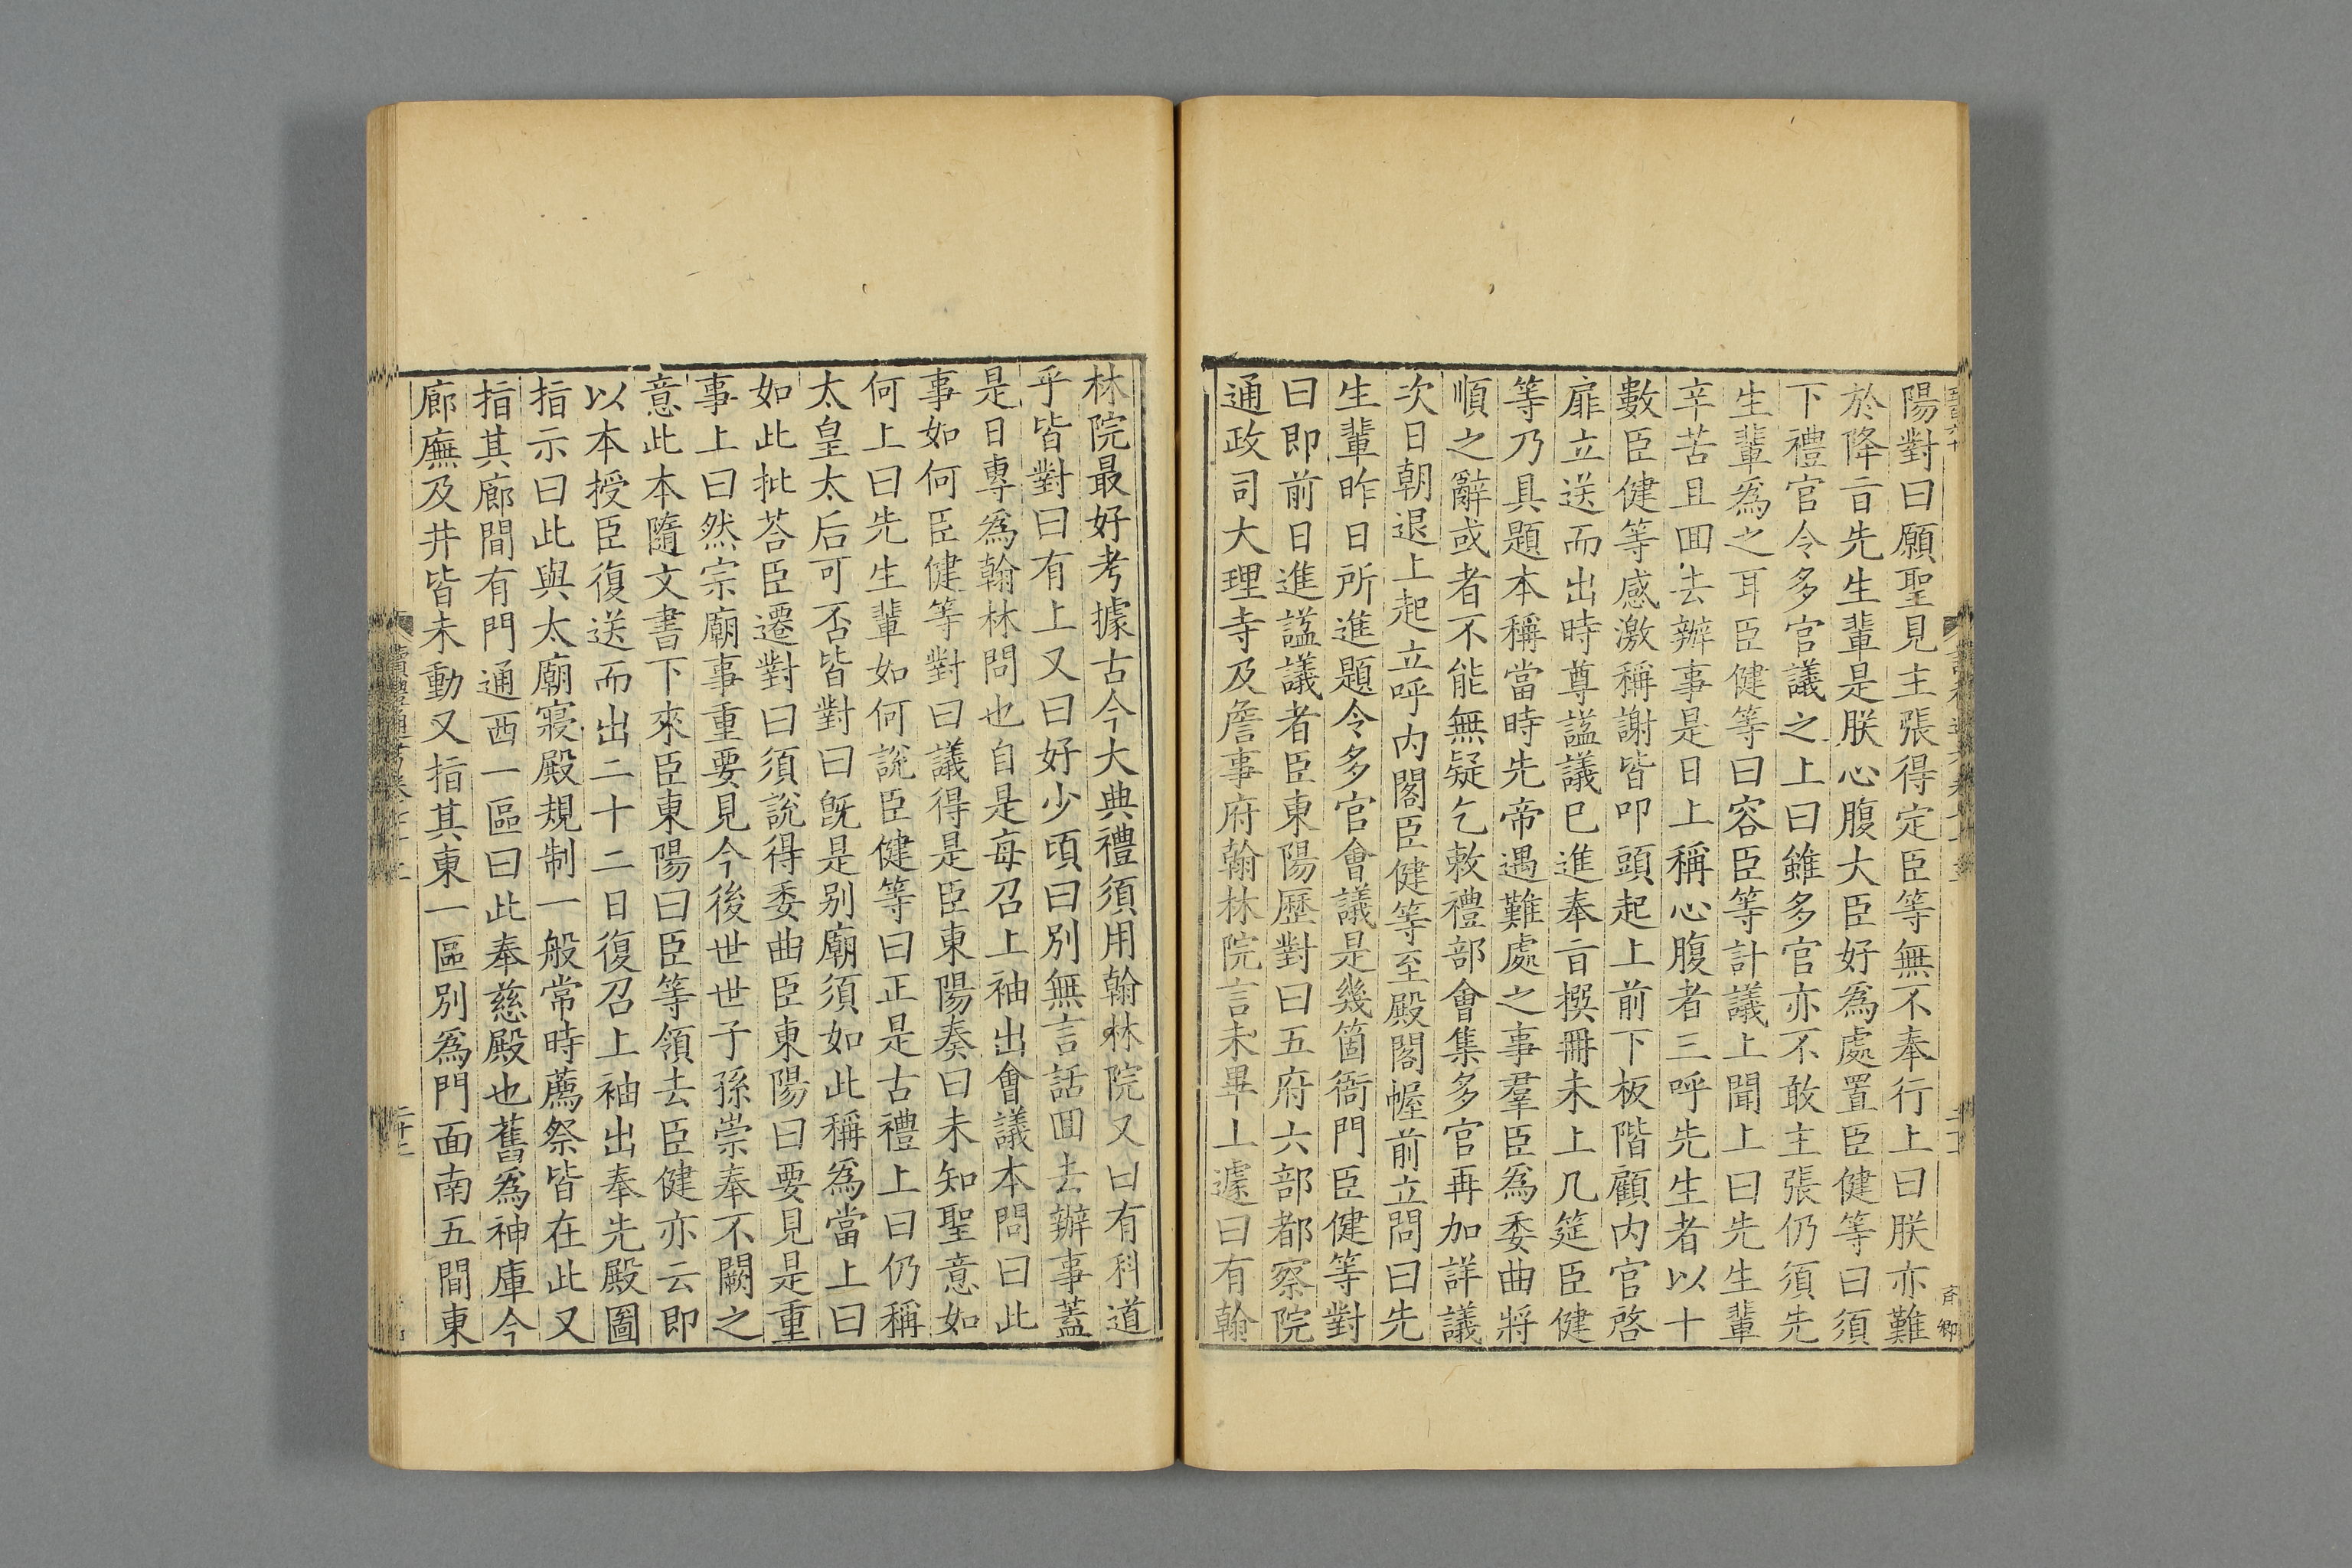 陽對曰願聖見主張得定臣等無不奉行上曰朕亦難
於降㫖先生輩是朕心腹大臣好爲處置臣健等曰須
下禮官令多官議之上曰雖多官亦不敢主張仍須先
生輩爲之耳臣健等曰容臣等計議上聞上曰先生輩
辛苦且囬去辦事是日上稱心腹者三呼先生者以十
數臣健等感激稱謝皆叩頭起上前下板階顧内官啓
扉立送而出時尊諡議巳進奉㫖撰冊未上几筵臣健
等乃具題本稱當時先帝遇難處之事羣臣爲委曲將
順之辭或者不能無疑乞敕禮部會集多官再加詳議
次日朝退上起立呼内閣臣健等至殿閣幄前立問曰先
生輩昨日所進題令多官會議是幾箇衙門臣健等對
曰即前日進諡議者臣東陽歷對曰五府六部都察院
通政司大理寺及詹事府翰林院言未畢上遽曰有翰
林院最好考據古今大典禮須用翰林院又曰有科道
乎皆對曰有上又曰好少頃曰別無言話囬去辦事蓋
是日專爲翰林問也自是每召上袖出會議本問曰此
事如何臣健等對曰議得是臣東陽奏曰未知聖意如
何上曰先生輩如何說臣健等曰正是古禮上曰仍稱
太皇太后可否皆對曰旣是别廟須如此稱爲當上曰
如此批荅臣遷對曰須說得委曲臣東陽曰要見是重
事上曰然宗廟事重要見今後世世子孫崇奉不闕之
意此本隨文書下來臣東陽曰臣等領去臣健亦云即
以本授臣復送而出二十二日復召上袖出奉先殿圖
指示曰此與太廟寢殿規制一般常時薦祭皆在此又
指其廊間有門通西一區曰此奉慈殿也舊爲神庫今
廊廡及井皆未動又指其東一區別爲門面南五間東